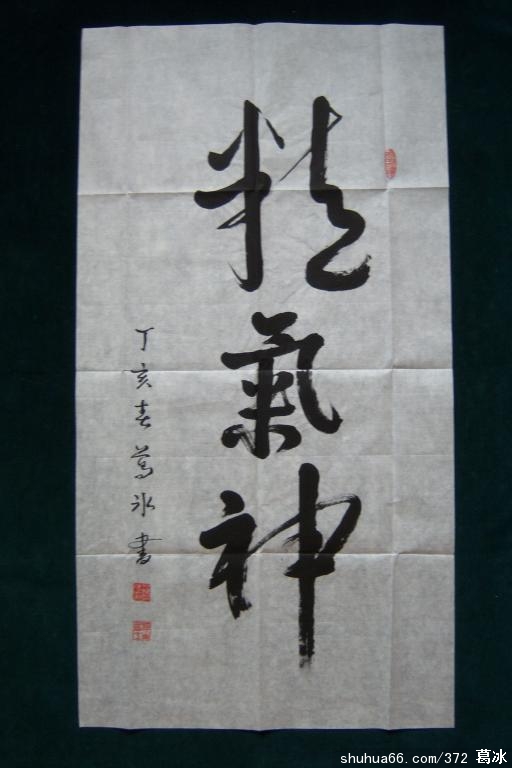 精氣神
丁亥春葛冰書
shuhua66.com/372 葛冰